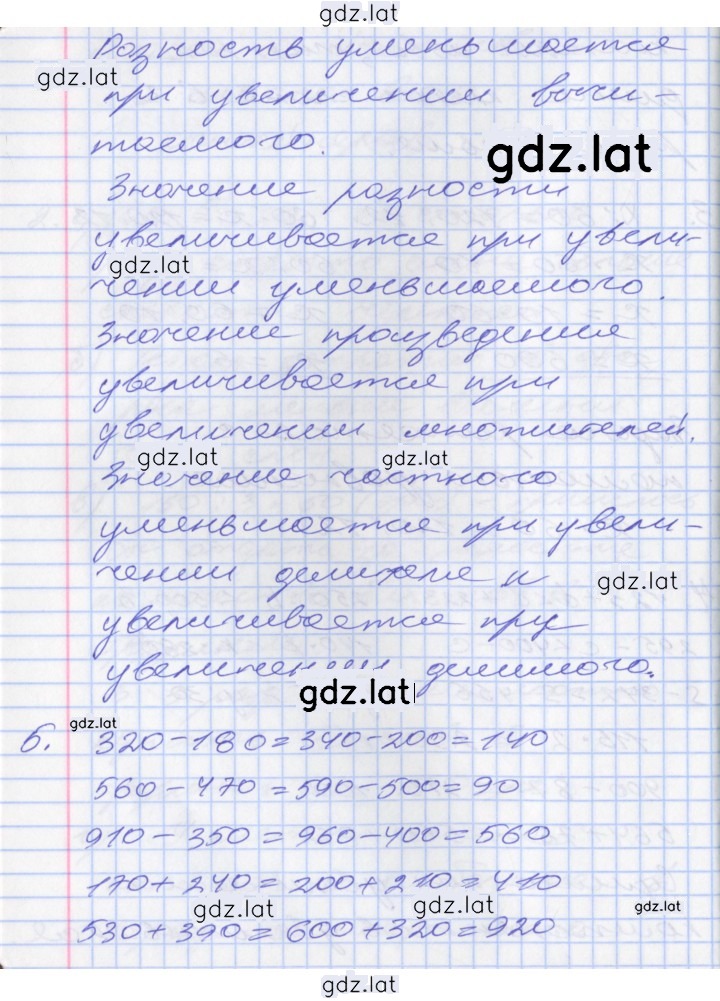 gdz.lat
Разность уменьшается
gdz.lat
при увеличении вычи-
таемого.
gdz.lat
Значение разности
увеличивается при увели-
gdz.lat
чении уменьшаемого.
Значение произведения
увеличивается при
увеличении множителей.
gdz.lat gdz.lat
Значение частного
уменьшается при увели-
чении делителя и
gdz.lat
увеличивается при
увеличении делимого.
gdz.lat
gdz.lat
6. 320-180=340-200=140
560-470=590-500=90
910-350=960-400=560
170+240=200+210=410
gdz.lat gdz.lat gdz.lat
530+390=600+320=920
gdz.lat